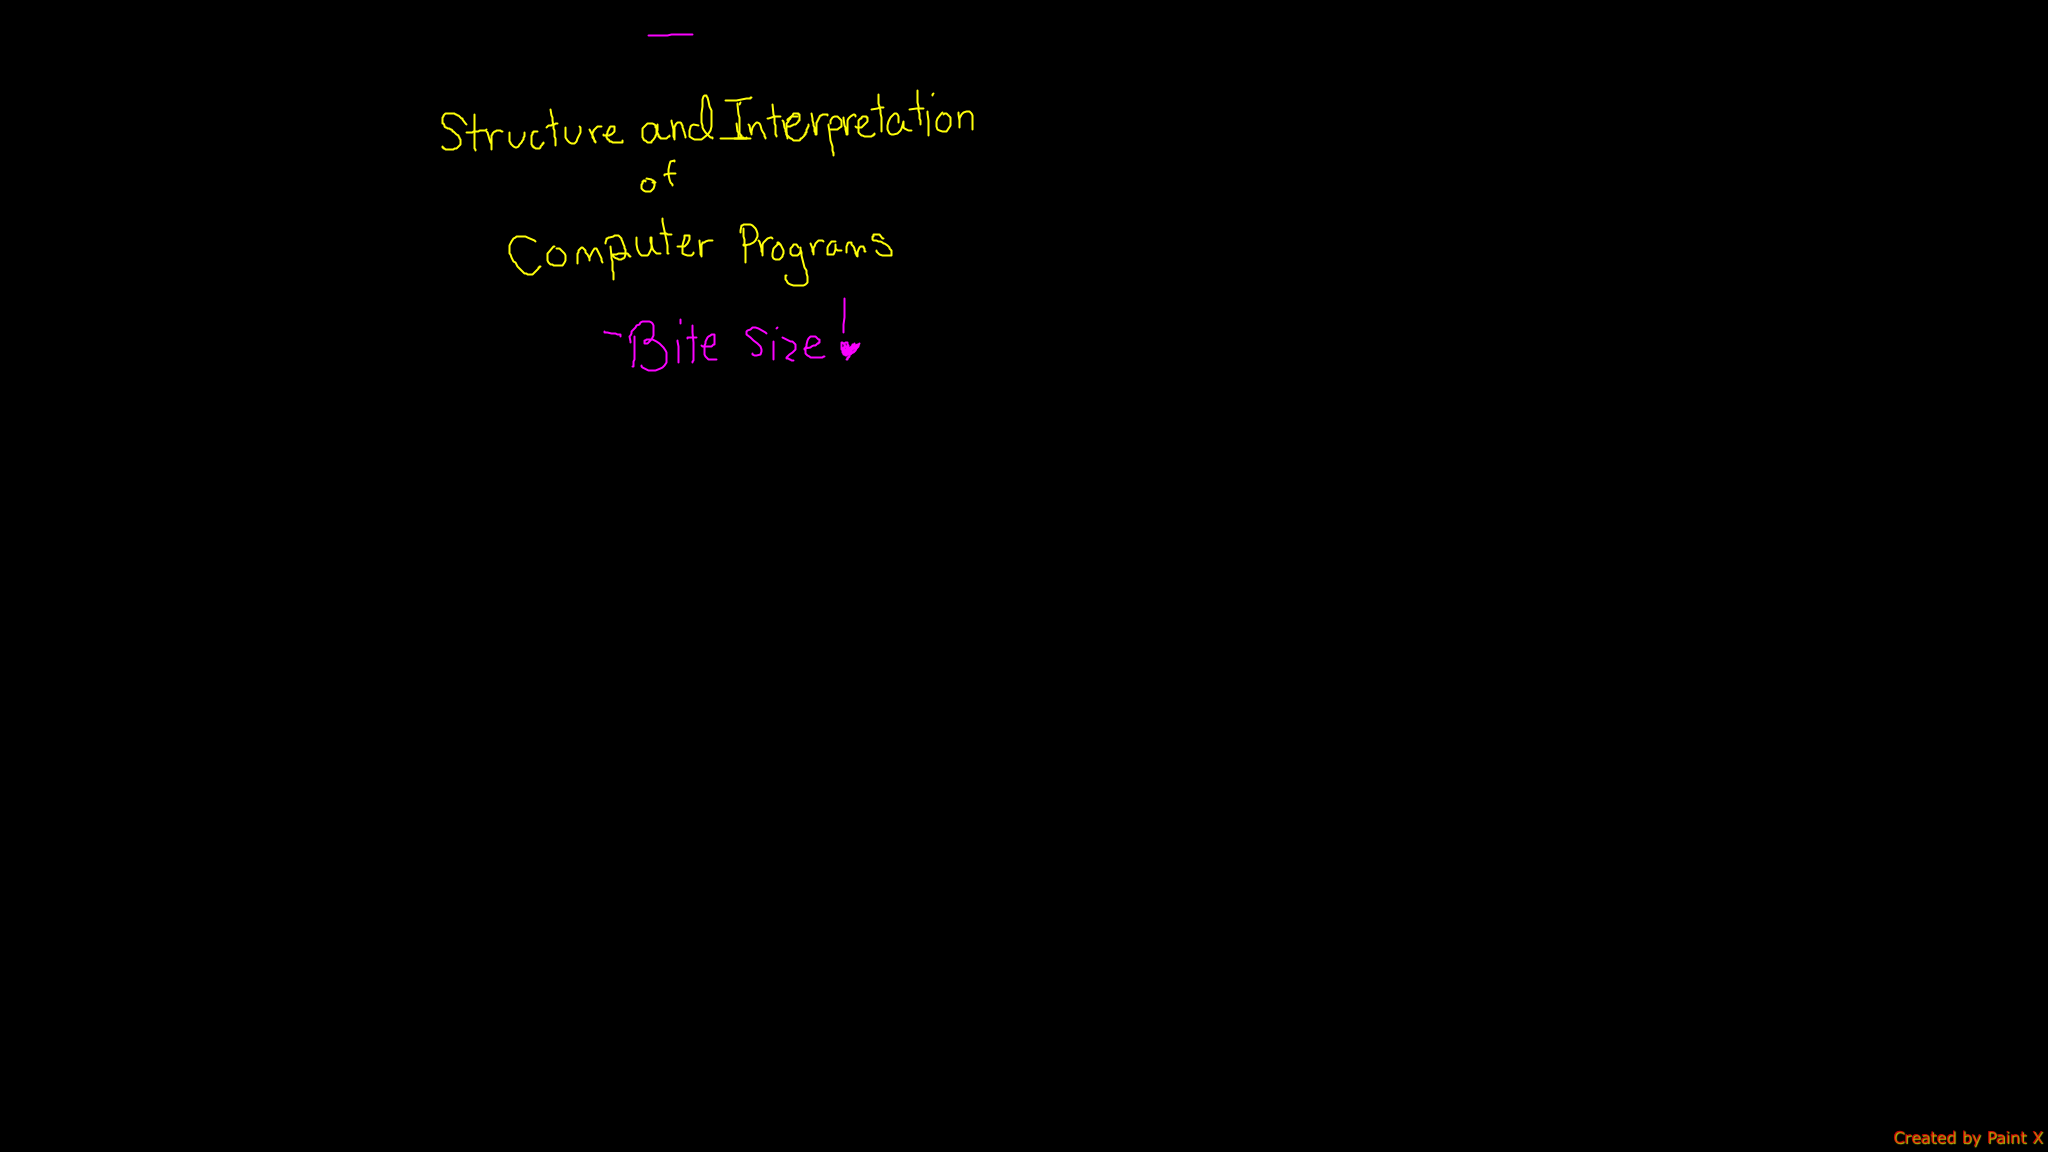 Structure and Interpretation
of
Computer Programs
-Bite Size!
Created by Paint X